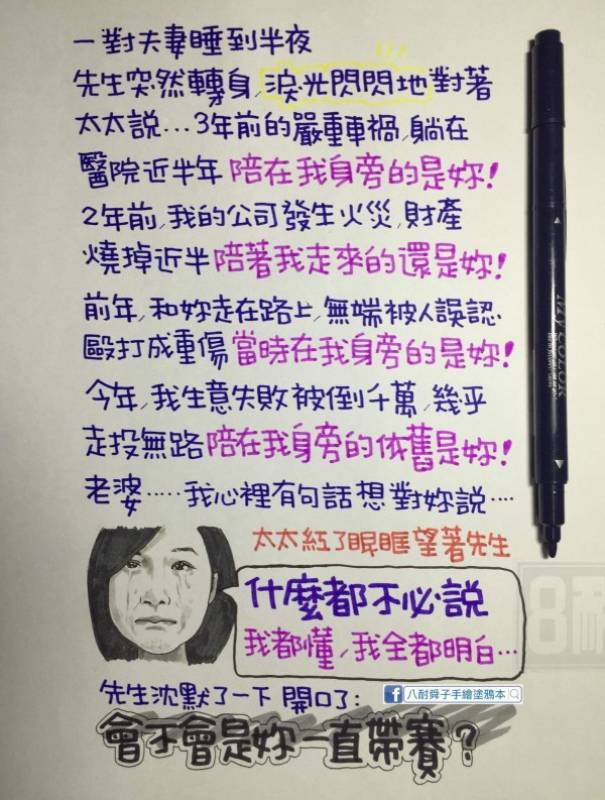 一對夫妻睡到半夜
先生突然轉身,淚光閃閃地對著
太太說...3年前的嚴重車禍,躺在
醫院近半年陪在我身旁的是妳!
2年前,我的公司發生火災,財產
燒掉近半陪著我走來的還是妳!
前年,和妳走在路上,無端被人誤認
毆打成重傷當時在我身旁的是妳!
今年,我生意失敗被倒千萬,幾乎
走投無路陪在我身旁的依舊是妳!
老婆.....我心裡有句話想對妳說....
太太紅了眼眶望著先生
什麼都不必說
我都懂,我全都明白...
八耐舜子手繪塗鴉本
先生沈默了一下 開口了:
會不會是妳一直帶賽?